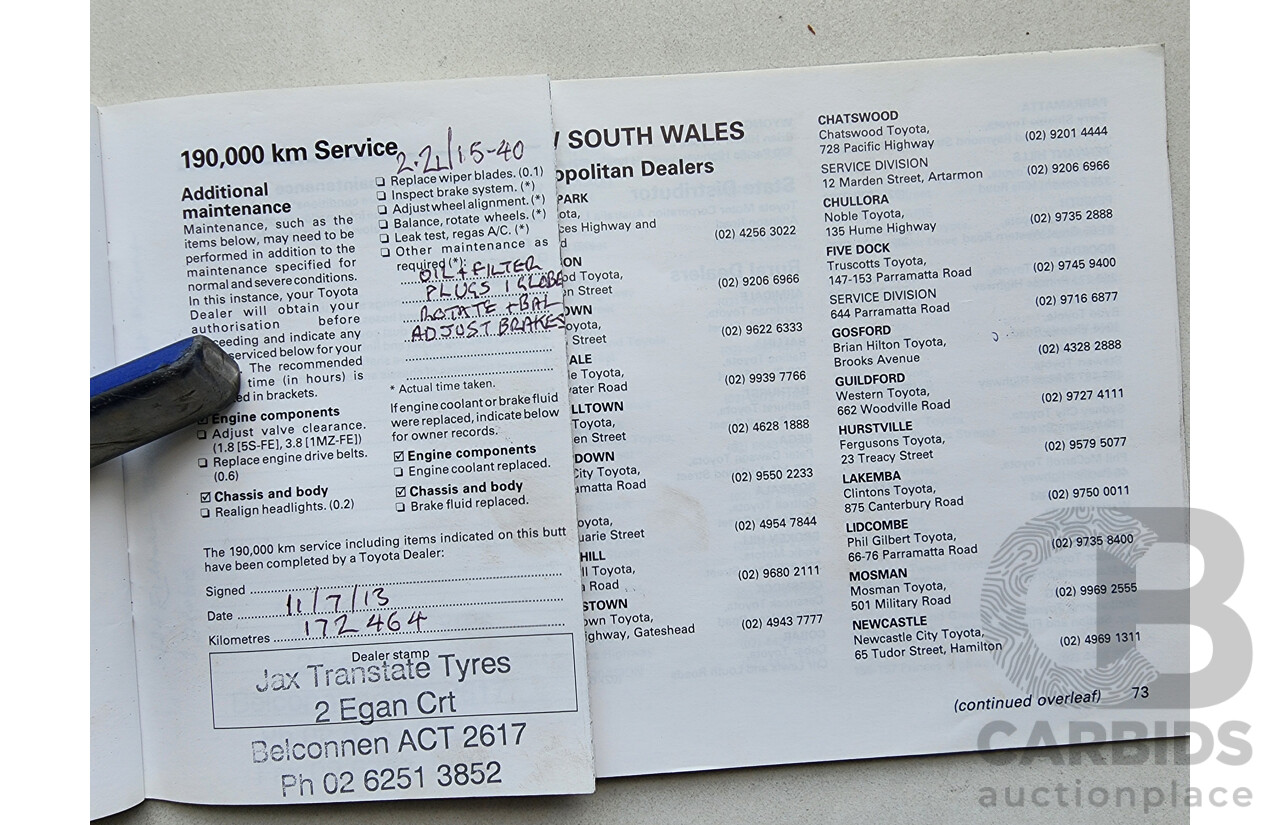 190,000 km Service
2.2L/15-40
Additional
maintenance
Maintenance, such as the
items below, may need to be
performed in addition to the
maintenance specified for
normal and severe conditions.
In this instance, your Toyota
Dealer will obtain your
authorisation before
ceeding and indicate any
serviced below for your
The recommended
time (in hours) is
ed in brackets.
Engine components
Adjust valve clearance.
(1.8 [5S-FE], 3.8 [1MZ-FE])
Replace engine drive belts.
(0.6)
Chassis and body
Realign headlights. (0.2)
Replace wiper blades. (0.1)
Inspect brake system. (*)
Adjust wheel alignment. (*)
Balance, rotate wheels. (*)
Leak test, regas A/C. (*)
Other maintenance as
required (*):
OIL + FILTER
PLUGS 1 GLOBE
ROTATE + BAL
ADJUST BRAKES
* Actual time taken.
If engine coolant or brake fluid
were replaced, indicate below
for owner records.
Engine components
Engine coolant replaced.
Chassis and body
Brake fluid replaced.
The 190,000 km service including items indicated on this butt
have been completed by a Toyota Dealer:
Signed
Date 11/7/13
Kilometres 172464
Dealer stamp
Jax Transtate Tyres
2 Egan Crt
Belconnen ACT 2617
Ph 02 6251 3852
SOUTH WALES
opolitan Dealers
PARK
ota,
ces Highway and
d (02) 4256 3022
ON
d Toyota,
n Street (02) 9206 6966
OWN
oyota,
Street (02) 9622 6333
ALE
e Toyota,
ater Road (02) 9939 7766
LLTOWN
Toyota,
en Street (02) 4628 1888
DOWN
City Toyota,
amatta Road (02) 9550 2233
oyota,
uarie Street (02) 4954 7844
HILL
ll Toyota,
Road (02) 9680 2111
STOWN
own Toyota,
ighway, Gateshead (02) 4943 7777
CHATSWOOD
Chatswood Toyota,
728 Pacific Highway (02) 9201 4444
SERVICE DIVISION
12 Marden Street, Artarmon (02) 9206 6966
CHULLORA
Noble Toyota,
135 Hume Highway (02) 9735 2888
FIVE DOCK
Truscotts Toyota,
147-153 Parramatta Road (02) 9745 9400
SERVICE DIVISION
644 Parramatta Road (02) 9716 6877
GOSFORD
Brian Hilton Toyota,
Brooks Avenue (02) 4328 2888
GUILDFORD
Western Toyota,
662 Woodville Road (02) 9727 4111
HURSTVILLE
Fergusons Toyota,
23 Treacy Street (02) 9579 5077
LAKEMBA
Clintons Toyota,
875 Canterbury Road (02) 9750 0011
LIDCOMBE
Phil Gilbert Toyota,
66-76 Parramatta Road (02) 9735 8400
MOSMAN
Mosman Toyota,
501 Military Road (02) 9969 2555
NEWCASTLE
Newcastle City Toyota,
65 Tudor Street, Hamilton (02) 4969 1311
(continued overleaf) 73
CARBIDS
auctionplace